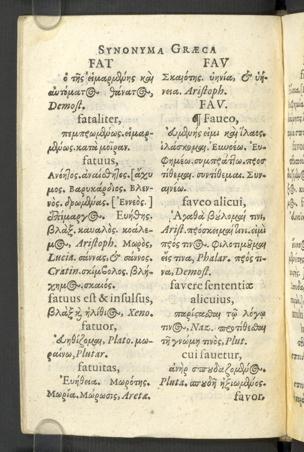 SYNONYMA GRÆCA
FAT
ὁ τῆς εἱμαρμένης καὶ
αὐτόματος θάνατος,
Demost.
fataliter,
πεπρωμένως. εἱμαρ-
μένως. κατὰ μοῖραν.
fatuus,
Ἀνόητος. ἀναίσθητος.
μος. Βαρυκάρδιος. Βλεν-
νός. [Ἐνεός.]
Εὐήθης.
βλάξ. κοάλε-
μος, Aristoph. Μωρός,
Lucia. σάννας, & σάννος.
Cratin. σκίμβολος. βλη-
σκαιός.
fatuus est & insulsus,
βλὰξ καὶ ἠλίθιος, Xeno.
fatuor,
Εὐηθίζομαι, Plato. μω-
ραίνω, Plutar.
fatuitas,
Εὐήθεια. Μωρότης.
Μωρία. Μώρωσις, Aretæ.
FAV
Σκαιότης. εὐηνία, & εὐή-
νεια. Aristoph.
FAV.
¶ Faueo,
εὐμενής εἰμι καὶ ἵλαος.
ἱλάσκομαι. Εὐνοέω. Εὐ-
φημέω. συμπράττω. προσ
τίθεμαι. συντίθεμαι. Συν-
αινέω.
faveo alicui,
Ἀγαθὰ βούλομαί τινι,
Arist. πρόσκειμαί τινι. εἰμὶ
πρός τινος. Φιλοτιμοῦμαι
εἴς τινα, Phalar. πρός τι-
να, Demost.
favere sententiæ
alicuius,
παρίσταμαι τῷ λόγῳ
τινός, Naz. προστίθεμαι
τῇ γνώμῃ τινός, Plut.
cui sauetur,
ἀνὴρ σπουδαζόμενος,
Pluta. σπουδῆ ἠξιωμένος.
favor,